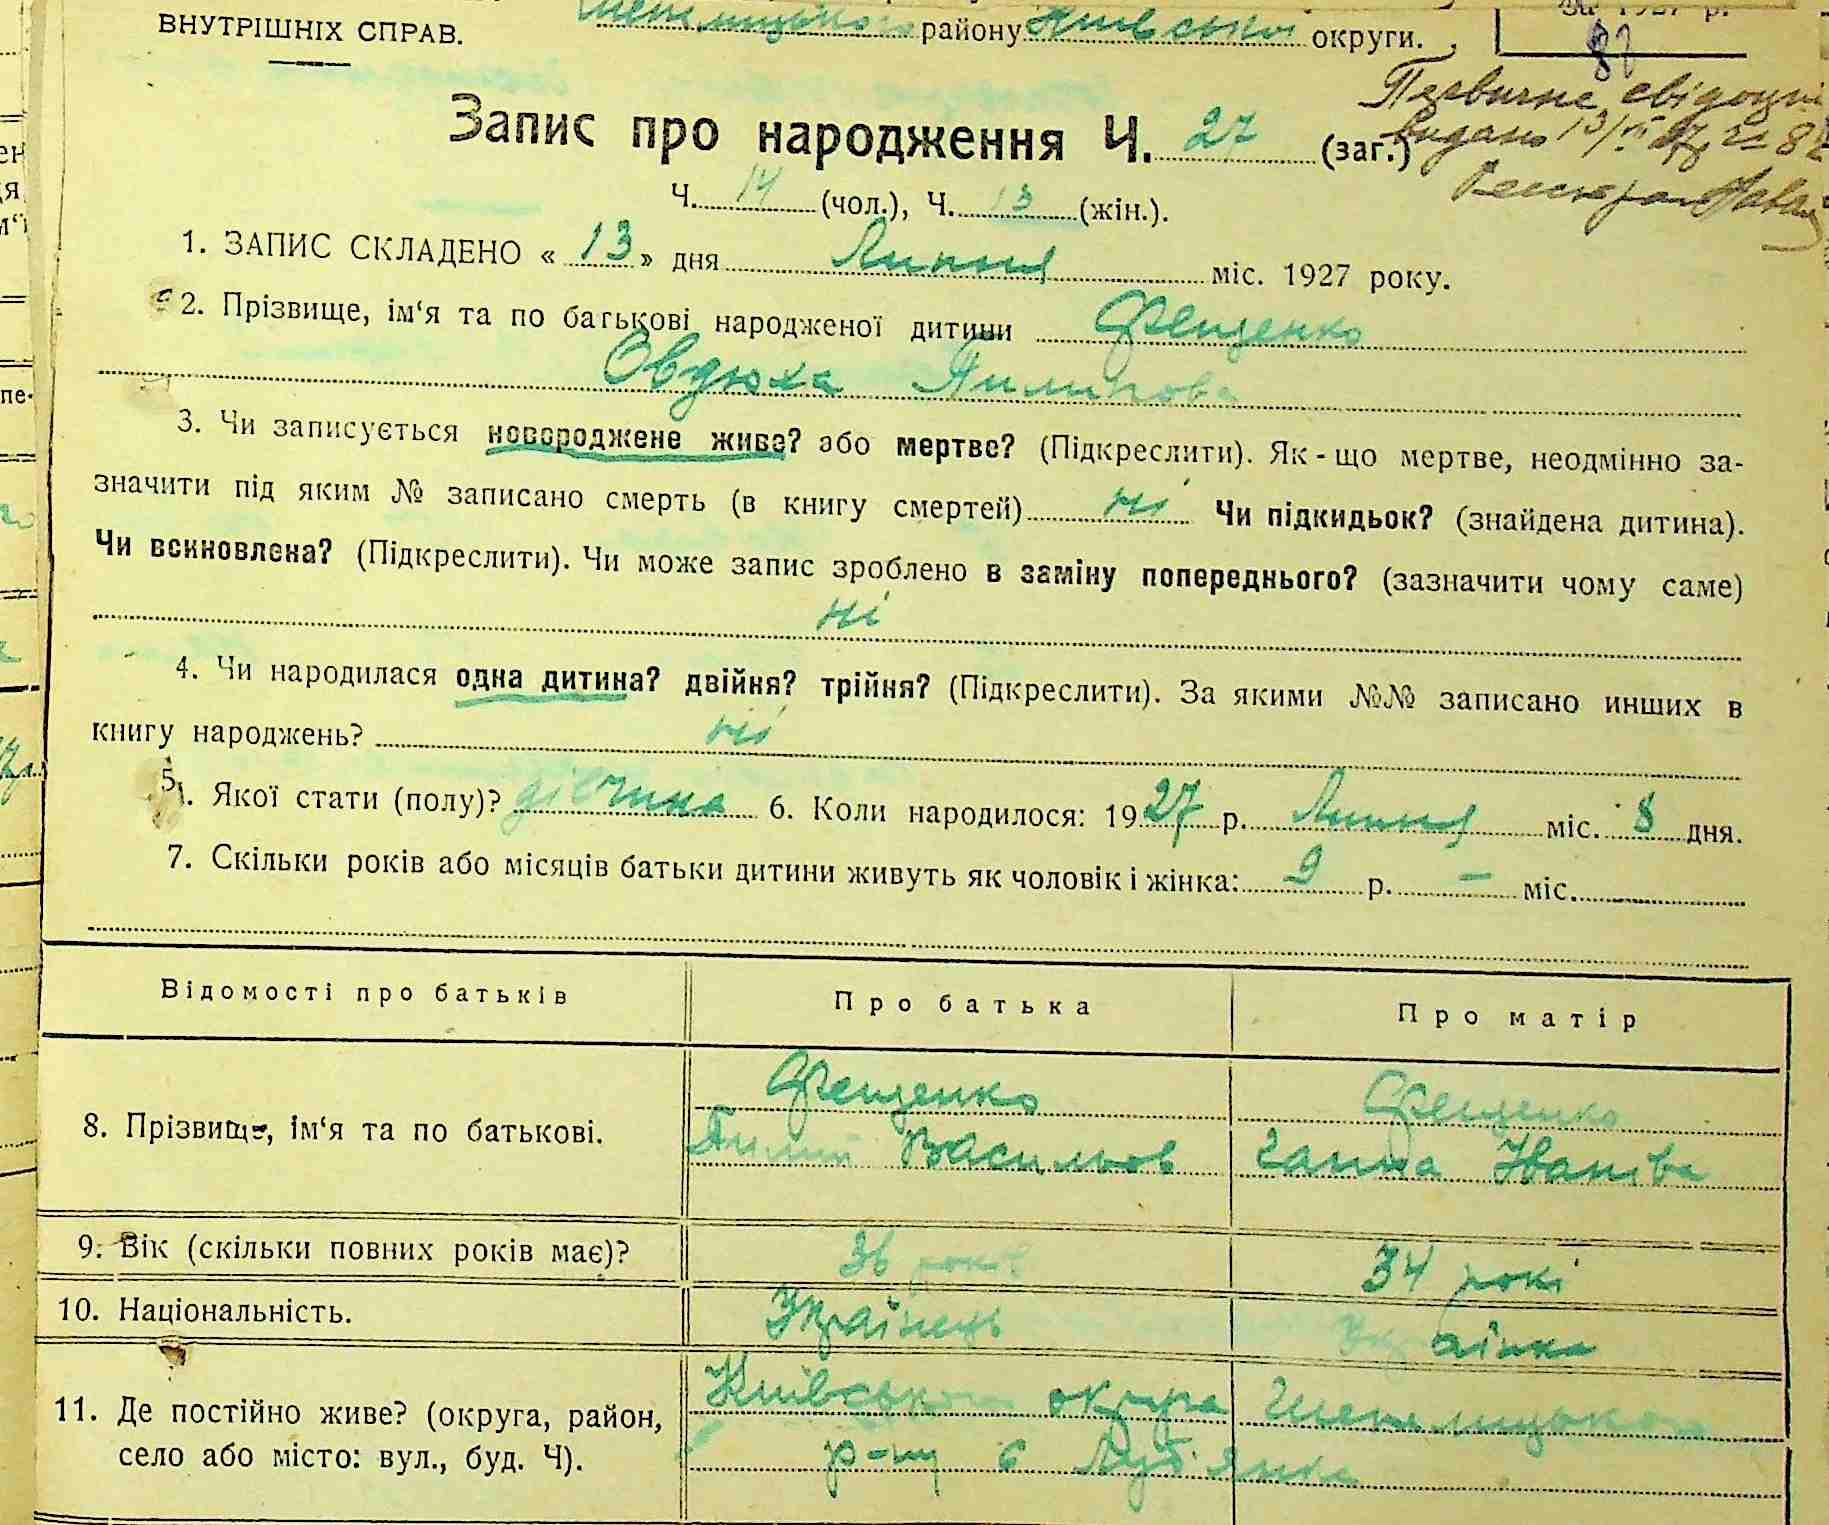 ВНУТРІШНІХ СПРАВ.
району Київської округи.
за 1927 р.
Запис про народження Ч. 27 (заг.)
Первичне свідоцт
видано 13/VII 27 № 82
Ч. 14 (чол.), Ч. 13 (жін.).
1. ЗАПИС СКЛАДЕНО « 13 » дня Липня міс. 1927 року.
2. Прізвище, ім‘я та по батькові народженої дитини Фещенко
Овдюха Пилипова
3. Чи записується новороджене живе? або мертве? (Підкреслити). Як-що мертве, неодмінно за-
значити під яким № записано смерть (в книгу смертей) ні Чи підкидьок? (знайдена дитина).
Чи всиновлена? (Підкреслити). Чи може запис зроблено в заміну попереднього? (зазначити чому саме)
ні
4. Чи народилася одна дитина? двійня? трійня? (Підкреслити). За якими №№ записано инших в
книгу народжень? ні
5. Якої стати (полу)? дівчина 6. Коли народилося: 1927 р. Липня міс. 8 дня.
7. Скільки років або місяців батьки дитини живуть як чоловік і жінка: 9 р. – міс.
Відомості про батьків
Про батька
Про матір
8. Прізвище, ім‘я та по батькові.
Фещенко
Пилип Васильов
Фещенко
Ганна Іванівна
9. Вік (скільки повних років має)?
36 років
34 рокі
10. Національність.
Українець
Українка
11. Де постійно живе? (округа, район,
село або місто: вул., буд. Ч).
Київської округа
р-ну с Луб'янка